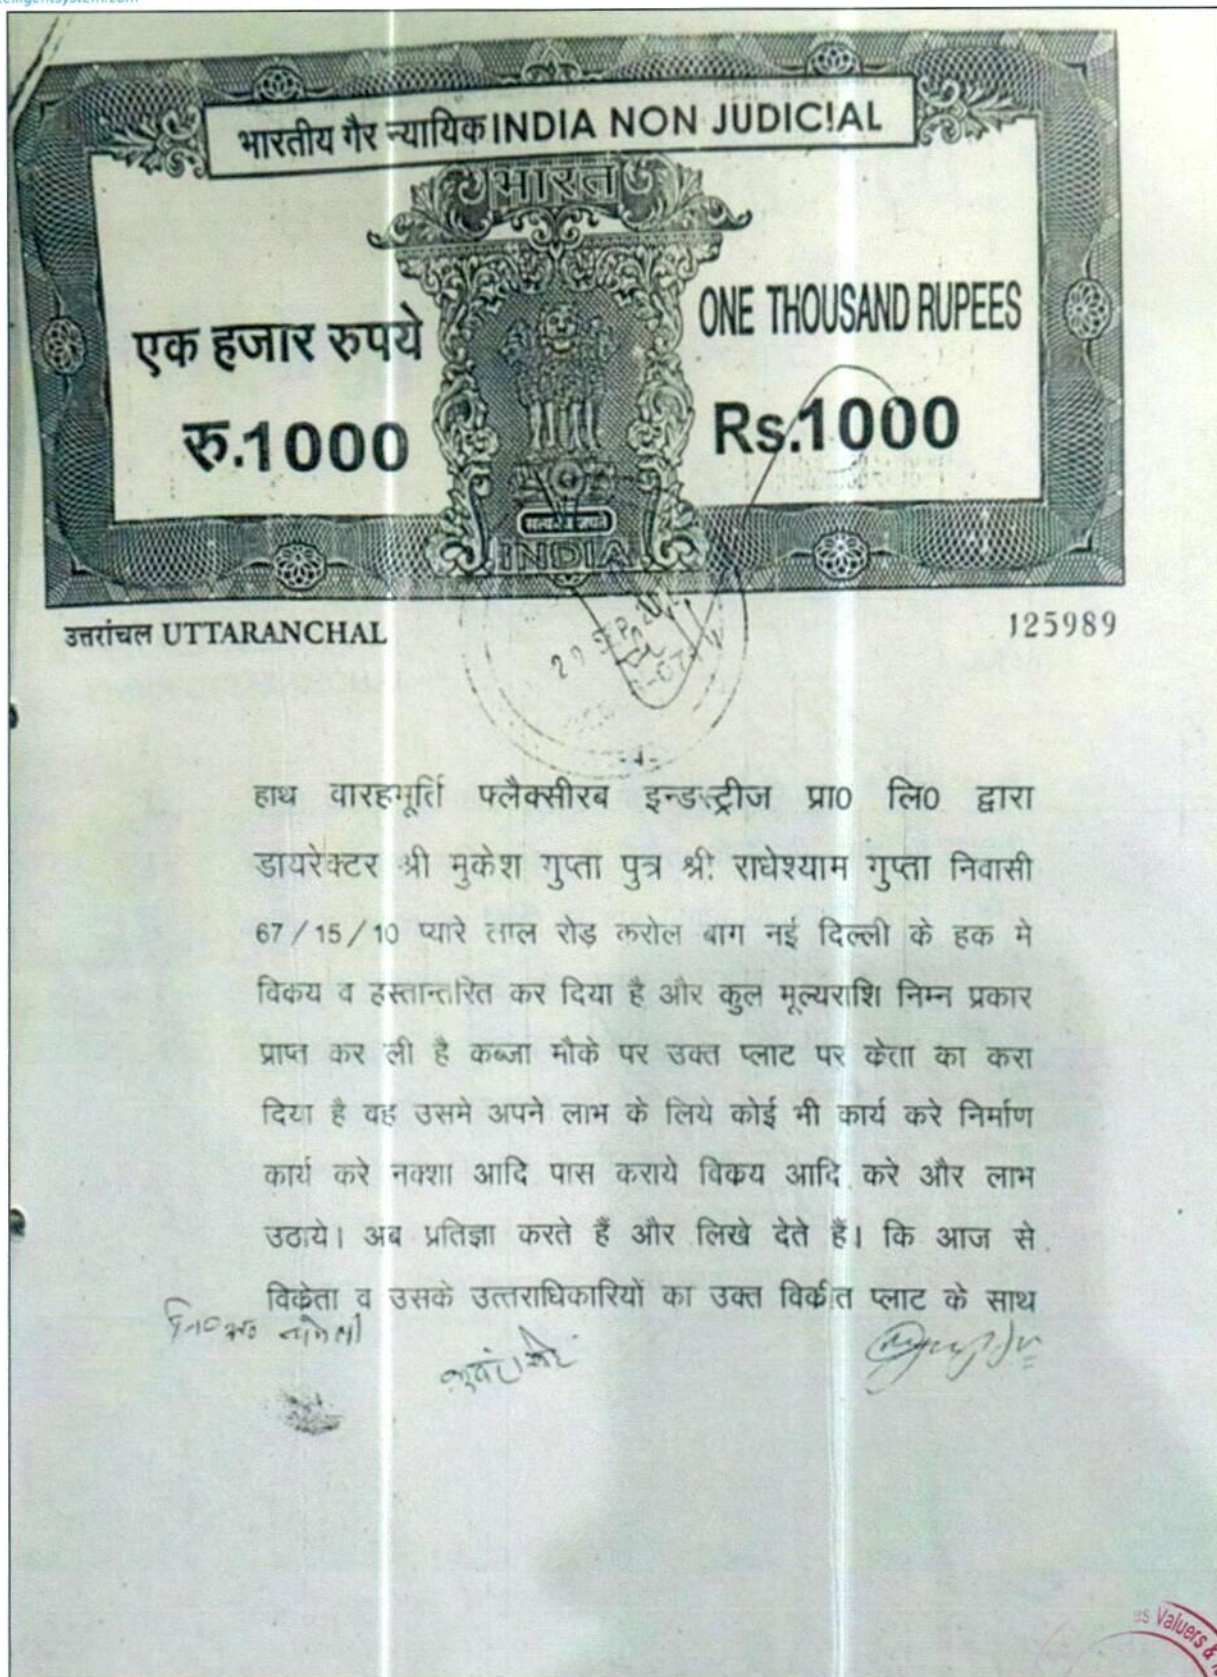 भारतीय गैर न्यायिक INDIA NON JUDICIAL
भारत
एक हजार रुपये
ONE THOUSAND RUPEES
रु.1000
Rs.1000
सत्यमेव जयते
INDIA
उत्तरांचल UTTARANCHAL
125989
-4-
हाथ वारहमूर्ति फ्लैक्सीरब इन्डस्ट्रीज प्रा0 लि0 द्वारा
डायरेक्टर श्री मुकेश गुप्ता पुत्र श्री राधेश्याम गुप्ता निवासी
67/15/10 प्यारे लाल रोड़ करोल बाग नई दिल्ली के हक मे
विकय व हस्तान्तरित कर दिया है और कुल मूल्यराशि निम्न प्रकार
प्राप्त कर ली है कब्जा मौके पर उक्त प्लाट पर केता का करा
दिया है वह उसमे अपने लाभ के लिये कोई भी कार्य करे निर्माण
कार्य करे नक्शा आदि पास कराये विकय आदि करे और लाभ
उठाये। अब प्रतिज्ञा करते हैं और लिखे देते हैं। कि आज से
विकेता व उसके उत्तराधिकारियों का उक्त विकीत प्लाट के साथ
Valuers &